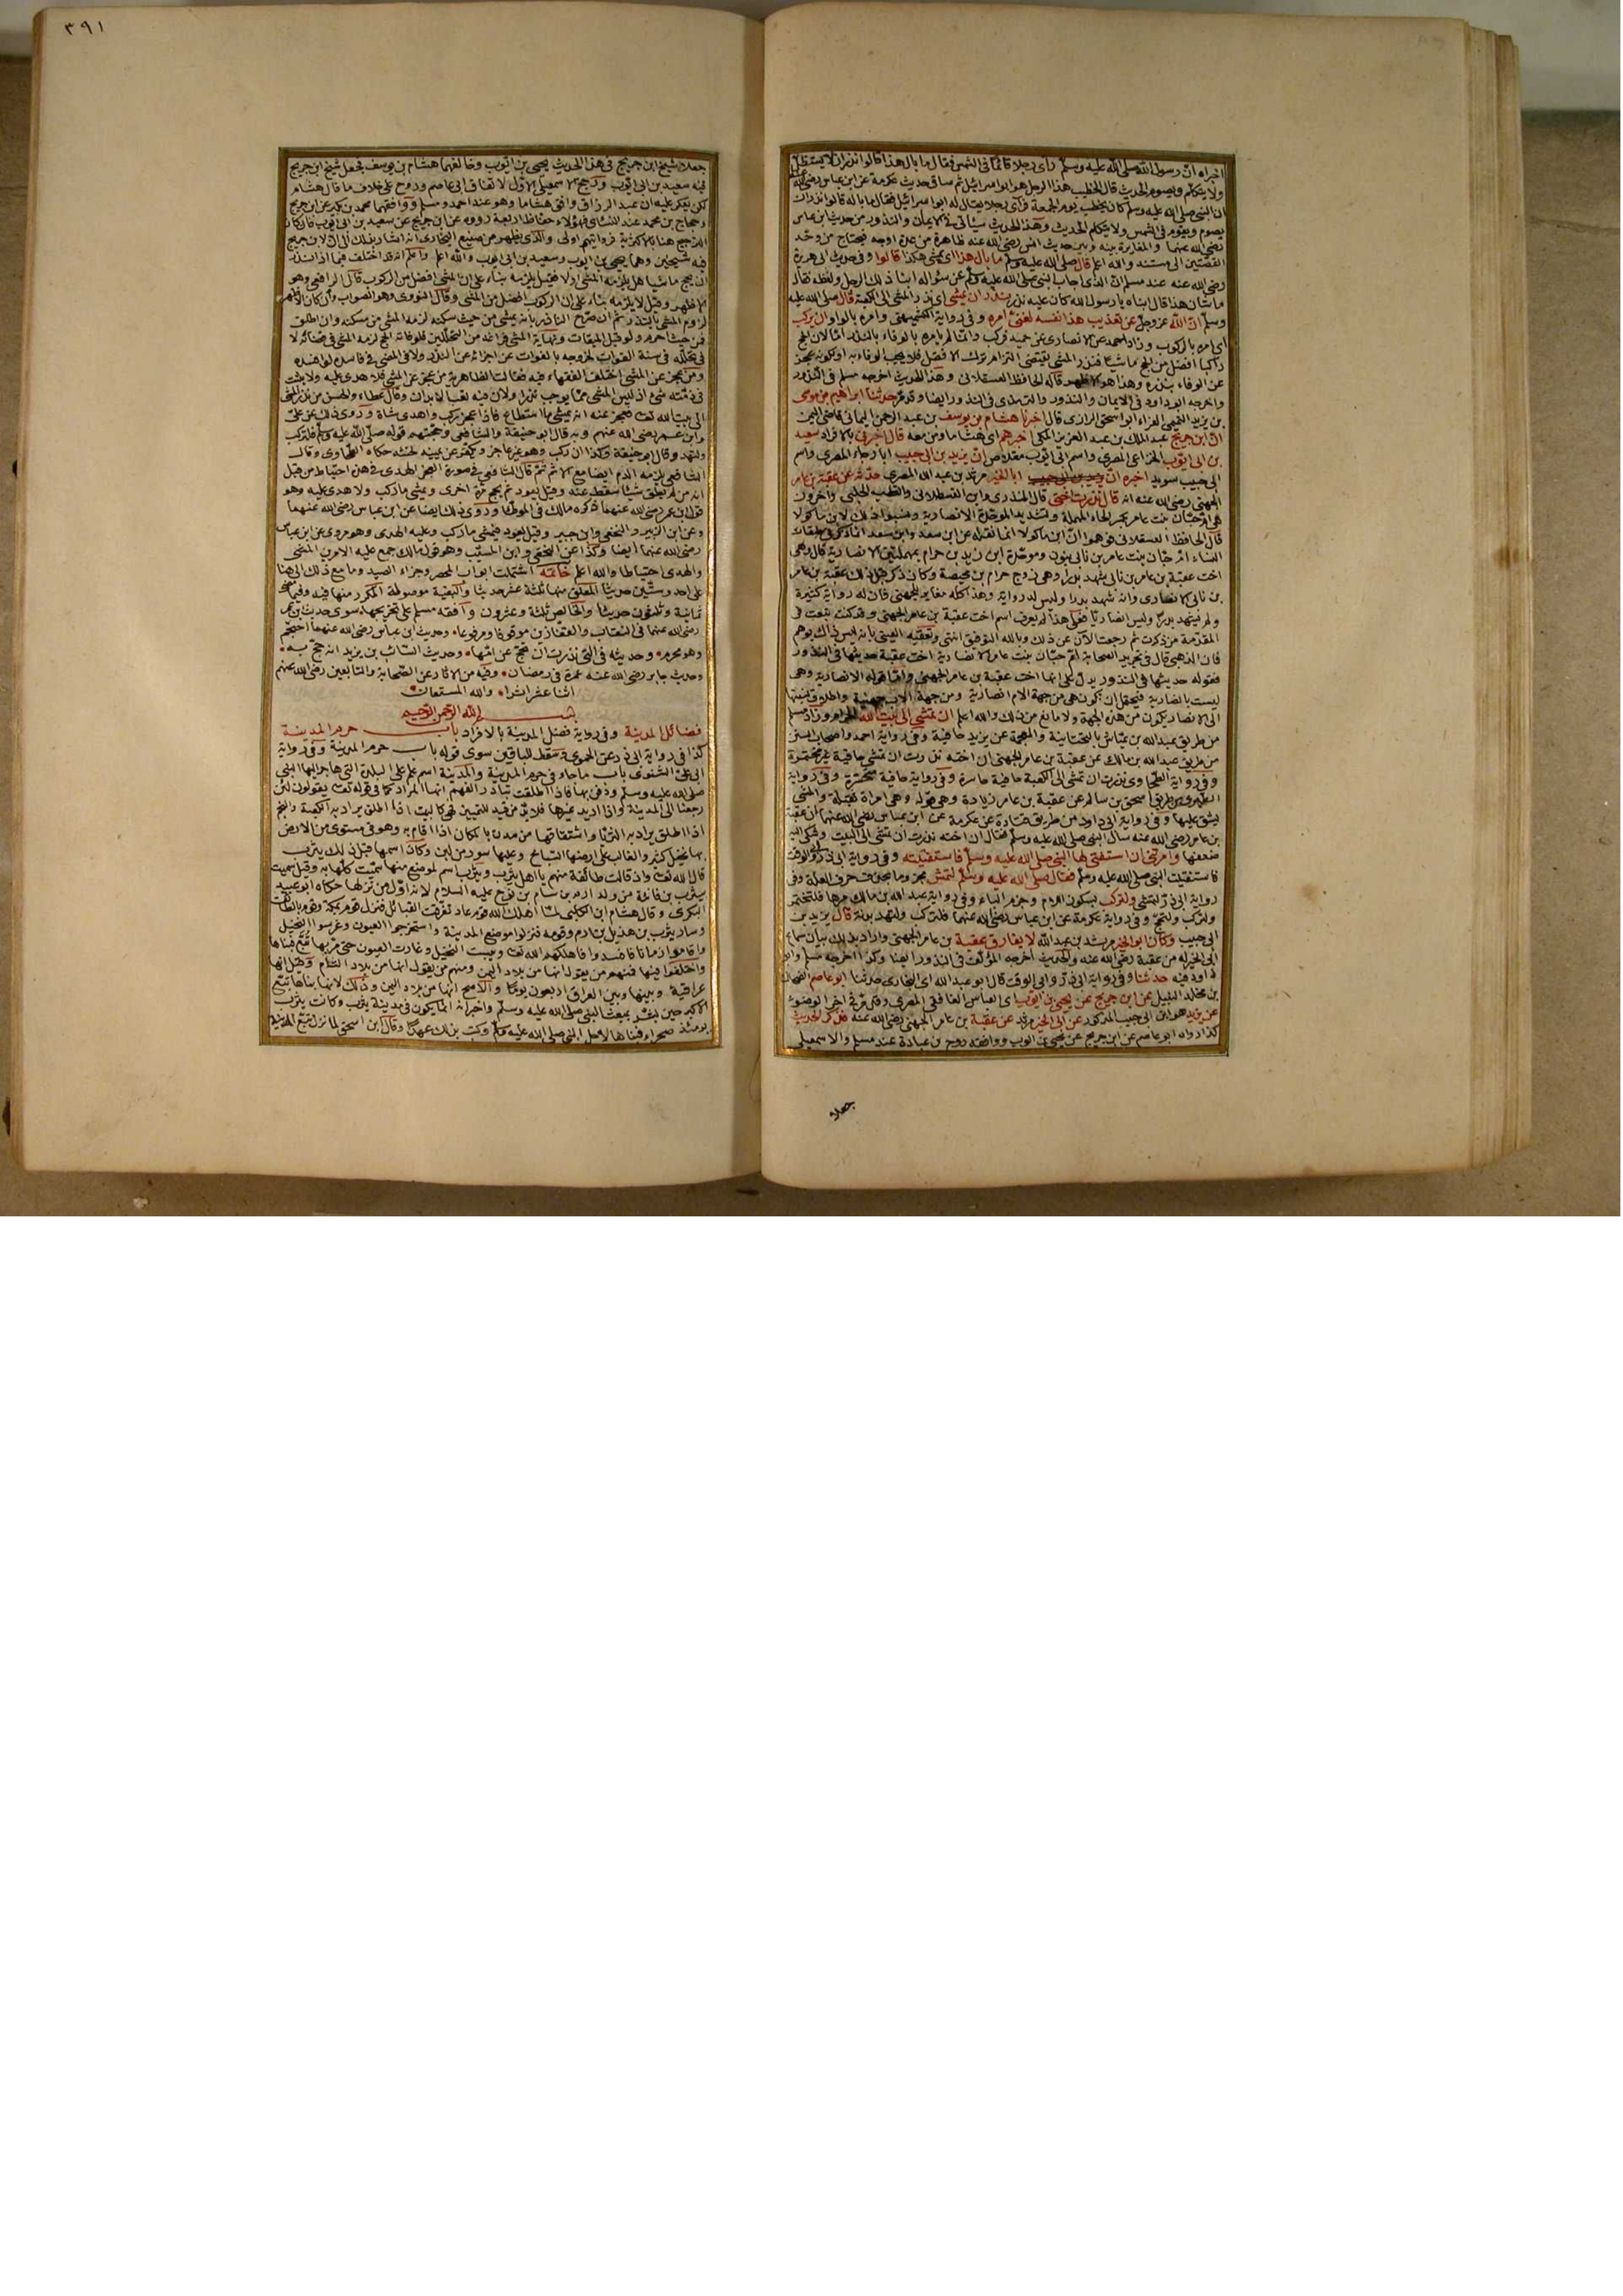 اخبراه انّ رسول الله صلى الله عليه وسلم رأى رجلا قائما فى الشمس فقال ما بال هذا قالوا نذر ان لا يستظلّ
ولا يتكلم ويصوم الحديث قال الخطيب هذا الرجل هو ابو اسرائيل ثم ساق حديث عكرمة عن ابن عباس رضى الله
ان النبى صلى الله عليه وسلم كان يخطب يوم الجمعة فرأى رجلا يقال له ابو اسرائيل فقال ما باله قالوا نذر ان
يصوم ويقوم فى الشمس ولا يتكلم الحديث وهذا الحديث سيأتى فى الايمان والنذور من حديث ابن عباس
رضى الله عنهما والمغايرة بينه وبين حديث انس رضى الله عنه ظاهرة من عدة اوجه فيحتاج من وحّد
القصّتين الى مستند والله اعلم قال صلى الله عليه وسلم ما بال هذا اى يمشى هكذا قالوا وفى حديث ابى هريرة
رضى الله عنه عند مسلم انّ الذى اجاب النبى صلى الله عليه وسلم عن سؤاله ابنا ذلك الرجل ولفظه فقال
ما شان هذا قال ابناه يا رسول الله كان عليه نذر نذر ان يمشى اى نذر المشى الى الكعبة قال صلى الله عليه
وسلم انّ الله عز وجلّ عن تعذيب هذا نفسه لغنىّ امره وفى رواية الكشميهنى وامره بالواو ان يركب
اى امره بالركوب وزاد احمد عن الانصارى عن حميد فركب وانما لم يامره بالوفاء بالنذر امّا لان الحج
راكبا افضل من الحج ماشيا فنذر المشى يقتضى التزام ترك الافضل فلا يجب الوفاء به او لكونه عجز
عن الوفاء بنذره وهذا هو الاظهر قاله الحافظ العسقلانى وهذا الحديث اخرجه مسلم فى النذور
واخرجه ابو داود فى الايمان والنذور والترمذى فى النذور ايضا وقد مرّ حدثنا ابراهيم بن موسى
بن يزيد التميمى الفراء ابو اسحق الرازى قال اخبرنا هشام بن يوسف بن عبد الرحمن اليمانى قاضى اليمن
انّ ابن جريج عبد الملك بن عبد العزيز المكى اخبرهم اى هشاما ومن معه قال اخبرنى بالافراد سعيد
بن ابى ايّوب الخزاعى المصرى واسم ابى ايّوب مقلاص انّ يزيد بن ابى حبيب ابا رجاء المصرى واسم
ابى حبيب سويد اخبره انّ ابا الخير مرثد بن عبد الله المصرى حدّثه عن عقبة بن عامر
الجهنى رضى الله عنه انه قال نذرت اختى قال المنذرى وابن القسطلانى والقطب الحلبى وآخرون
هى امّ حبّان بنت عامر بكسر الحاء المهملة وتشديد الموحّدة الانصارية ونسبوا ذلك لابن ماكولا
قال الحافظ العسقلانى فوهموا انّ ابن ماكولا انما نقله عن ابن سعد وابن سعد انما ذكر فى طبقات
النساء امّ حبّان بنت عامر بن نابى بنون وموحّدة ابن زيد بن حرام بمهملتين الانصارية قال وهى
اخت عقبة بن عامر بن نابى شهد بدرا وهى زوج حرام بن محيصة وكان ذكر قبل ذلك عقبة بن عامر
بن نابى الانصارى وانه شهد بدرا وليس له رواية وهذا كله مغاير للجهنى فان له رواية كثيرة
ولم يشهد بدرا وليس انصاريّا فعلى هذا لم يعرف اسم اخت عقبة بن عامر الجهنى وقد كنت تبعت فى
المقدّمة من ذكرت ثم رجعت الآن عن ذلك وبالله التوفيق انتهى وتعقّبه العينى بانه ليس ذلك بوهم
فان الذهبى قال فى تجريد الصحابة امّ حبّان بنت عامر الانصارية اخت عقبة حديثها فى النذور
فقوله حديثها فى النذور يدلّ على انها اخت عقبة بن عامر الجهنى وامّا قوله الانصارية وهى
ليست بانصارية فيحتمل ان تكون هى من جهة الام انصارية ومن جهة الاب جهنية واطلاق نسبتها
الى الانصار يكون من هذه الجهة ولا مانع من ذلك والله اعلم ان تمشى الى بيت الله الحرام وزاد مسلم
من طريق عبد الله بن عيّاش بالتحتانية والمعجمة عن يزيد حافية وفى رواية احمد واصحاب السنن
من طريق عبد الله بن مالك عن عقبة بن عامر الجهنى ان اخته نذرت ان تمشى حافية غير مختمرة
وفى رواية الطحاوى نذرت ان تمشى الى الكعبة حافية حاسرة وفى رواية حافية متحسّرة وفى رواية
الطبرى من طريق اسحق بن سالم عن عقبة بن عامر زيادة وهى قوله وهى امراة ثقيلة والمشى
يشق عليها وفى رواية ابى داود من طريق قتادة عن عكرمة عن ابن عباس رضى الله عنهما ان عقبة
بن عامر رضى الله عنه سال النبى صلى الله عليه وسلم فقال ان اخته نذرت ان تمشى الى البيت وشكى اليه
ضعفها وامرتنى ان استفتى لها النبى صلى الله عليه وسلم فاستفتيته وفى رواية ابى ذر وابى الوقت
فاستفتيت النبى صلى الله عليه وسلم فقال صلى الله عليه وسلم لتمش مجزوما بحذف حرف العلة وفى
رواية ابى ذرّ لتمشى ولتركب بسكون اللام وجزم الباء وفى رواية عبد الله بن مالك مرها فلتختمر
ولتركب ولتحجّ وفى رواية عكرمة عن ابن عباس رضى الله عنهما فلتركب ولتهد بدنة قال يزيد بن
ابى حبيب وكان ابو الخير مرثد بن عبد الله لا يفارق عقبة بن عامر الجهنى واراد بذلك بيان سماع
ابى الخير له من عقبة رضى الله عنه والحديث اخرجه المؤلف فى النذور ايضا وكذا اخرجه مسلم وابو
داود فيه حدثنا وفى رواية ابى ذرّ وابى الوقت قال ابو عبد الله اى البخارى حدثنا ابو عاصم الضحاك
بن مخلد النبيل عن ابن جريج عن يحيى بن ايّوب ابى العباس الغافقى المصرى وقد مرّ فى اخر الوضوء
عن يزيد هو ابن ابى حبيب المذكور عن ابى الخير مرثد عن عقبة بن عامر الجهنى رضى الله عنه فذكر الحديث
كذا رواه ابو عاصم عن ابن جريج عن يحيى بن ايوب ووافقه روح بن عبادة عند مسلم والاسمعيلى
جعلا
٣٩١
جعلا شيخ ابن جريج فى هذا الحديث يحيى بن ايّوب وخالفهما هشام بن يوسف فجعل شيخ ابن جريج
فيه سعيد بن ابى ايّوب ورجح الاسمعيلى الاوّل لاتفاق ابى عاصم وروح على خلاف ما قال هشام
لكن يعكر عليه ان عبد الرزاق وافق هشاما وهو عند احمد ومسلم ووافقهما محمد بن بكر عن ابن جريج
وحجاج بن محمد عند النسائى فهؤلاء حفاظ اربعة رووه عن ابن جريج عن سعيد بن ابى ايّوب فان كان
الترجيح هنا بالاكثرية فروايتهم اولى والذى يظهر من صنيع البخارى انه اشار بذلك الى ان لابن جريج
فيه شيخين وهما يحيى بن ايوب وسعيد بن ابى ايوب والله اعلم واعلم انه قد اختلف فيما اذا نذر
ان يحج ماشيا هل يلزمه المشى اولا فقيل يلزمه بناء على انّ المشى افضل من الركوب قال الرافعى وهو
الاظهر وقيل لا يلزمه بناء على ان الركوب افضل من المشى وقال النووى وهو الصواب وان كان الاظهر
لزوم المشى بالنذر ثم ان صرّح الناذر بانه يمشى من حيث سكنه لزمه المشى من مسكنه وان اطلق
فمن حيث احرم ولو قبل الميقات ونهاية المشى فراغه من التحللين فلو فاته الحج لزمه المشى فى قضائه لا
فى تحلله فى سنة الفوات لخروجه بالفوات عن اجزائه عن النذر ولا فى المضى فى فاسده لو افسده
ومن عجز عن المشى اختلف الفقهاء فيه فقالت الظاهرية من عجز عن المشى فلا هدى عليه ولا يثبت
فى ذمّته شئ اذ ليس المشى ممّا يوجب نذرا ولان فيه تعب الابدان وقال عطاء والحسن من نذر المشى
الى بيت الله تعالى فعجز عنه انه يمشى ما استطاع فاذا عجز ركب واهدى شاة وروى ذلك عن علىّ
وابن عمر رضى الله عنهم وبه قال ابو حنيفة والشافعى وحجّتهم قوله صلى الله عليه وسلم فلتركب
ولتهد وقال ابو حنيفة وكذا ان ركب وهو غير عاجز ويكفّر عن يمينه لحنثه حكاه الطحاوى وقال
الشافعى يلزمه الدم ايضا مع الاثم ثمّ قال الشافعى فى صورة العجز الهدى فى هذه احتياط من قبل
انه من لم يطق شيئا سقط عنه وقيل يعود ثم يحج مرّة اخرى ويمشى ما ركب ولا هدى عليه وهو
قول ابن عمر رضى الله عنهما ذكره مالك فى الموطأ وروى ذلك ايضا عن ابن عباس رضى الله عنهما
وعن ابن الزبير والنخعى وابن جبير وقيل يعود فيمشى ما ركب وعليه الهدى وهو مروى عن ابن عباس
رضى الله عنهما ايضا وكذا عن النخعى وابن المسيّب وهو قول مالك جمع عليه الامرين المشى
والهدى احتياطا والله اعلم خاتمة اشتملت ابواب المحصر وجزاء الصيد وما مع ذلك الى هنا
على احد وستّين حديثا المعلق منها ثلثة عشر حديثا والبقية موصولة المكرر منها فيه وفيما مضى
ثمانية وثلثون حديثا والخالص ثلثة وعشرون وافقه مسلم على تخريجها سوى حديث ابن عمر
رضى الله عنهما فى النقاب والقفّازين موقوفا ومرفوعا وحديث ابن عباس رضى الله عنهما احتجم
وهو محرم وحديثه فى التى نذرت ان تحجّ عن امّها وحديث السّائب بن يزيد انه حجّ به
وحديث جابر رضى الله عنه عمرة فى رمضان وفيه من الاثار عن الصّحابة والتابعين رضى الله عنهم
اثنا عشر اثرا والله المستعان
بسم الله الرحمن الرحيم
فضائل المدينة وفى رواية فضل المدينة بالافراد باب حرم المدينة
كذا فى رواية ابى ذر عن الحموى وسقط للباقين سوى قوله باب حرم المدينة وفى رواية
ابى علىّ الشبوى باب ما جاء فى حرم المدينة والمدينة اسم علم على البلدة التى هاجر اليها النبى
صلى الله عليه وسلم ودفن بها فاذا اطلقت تبادر الفهم انها المراد كما فى قوله تعالى يقولون لئن
رجعنا الى المدينة واذا اريد غيرها فلا بدّ من قيد للتمييز فهى كالبيت اذا اطلق يراد به الكعبة والنجم
اذا اطلق يراد به الثريّا واشتقاقها من مدن بالمكان اذا اقام به وهو فى مستوى من الارض
بها نخيل كثير والغالب على ارضها السّباخ وعليها سور من لبن وكان اسمها قبل ذلك يثرب
قال الله تعالى واذ قالت طائفة منهم يا اهل يثرب ويثرب اسم لموضع منها سمّيت كلّها به وقيل سميت
بيثرب بن قانية من ولد ارم بن سام بن نوح عليه السلام لانه اوّل من نزلها حكاه ابو عبيد
البكرى وقال هشام ابن الكلبى لمّا اهلك الله قوم عاد تفرّقت القبائل فنزل قوم بمكة وقوم بالطائف
وسار يثرب بن هذيل بن ارم وقومه فنزلوا موضع المدينة واستخرجوا العيون وغرسوا النخيل
واقاموا زمانا فافسدوا فاهلكهم الله تعالى ويبست النخيل وغارت العيون حتى مرّ بها تبّع فبناها
واختلفوا فيها فمنهم من يقول انها من بلاد اليمن ومنهم من يقول انها من بلاد الشام وقيل انها
عراقية وبينها وبين العراق اربعون يومًا والاصح انها من بلاد اليمن وذلك لانها بناها تبّع
الاكبر حين بشّر بمبعث النبى صلى الله عليه وسلم واخبر انه انما يكون فى مدينة يثرب وكانت يثرب
يومئذ صحراء فبناها لاجل النبى صلى الله عليه وسلم وكتب بذلك عهدًا وقال ابن اسحق لما نزل تبّع المدينة